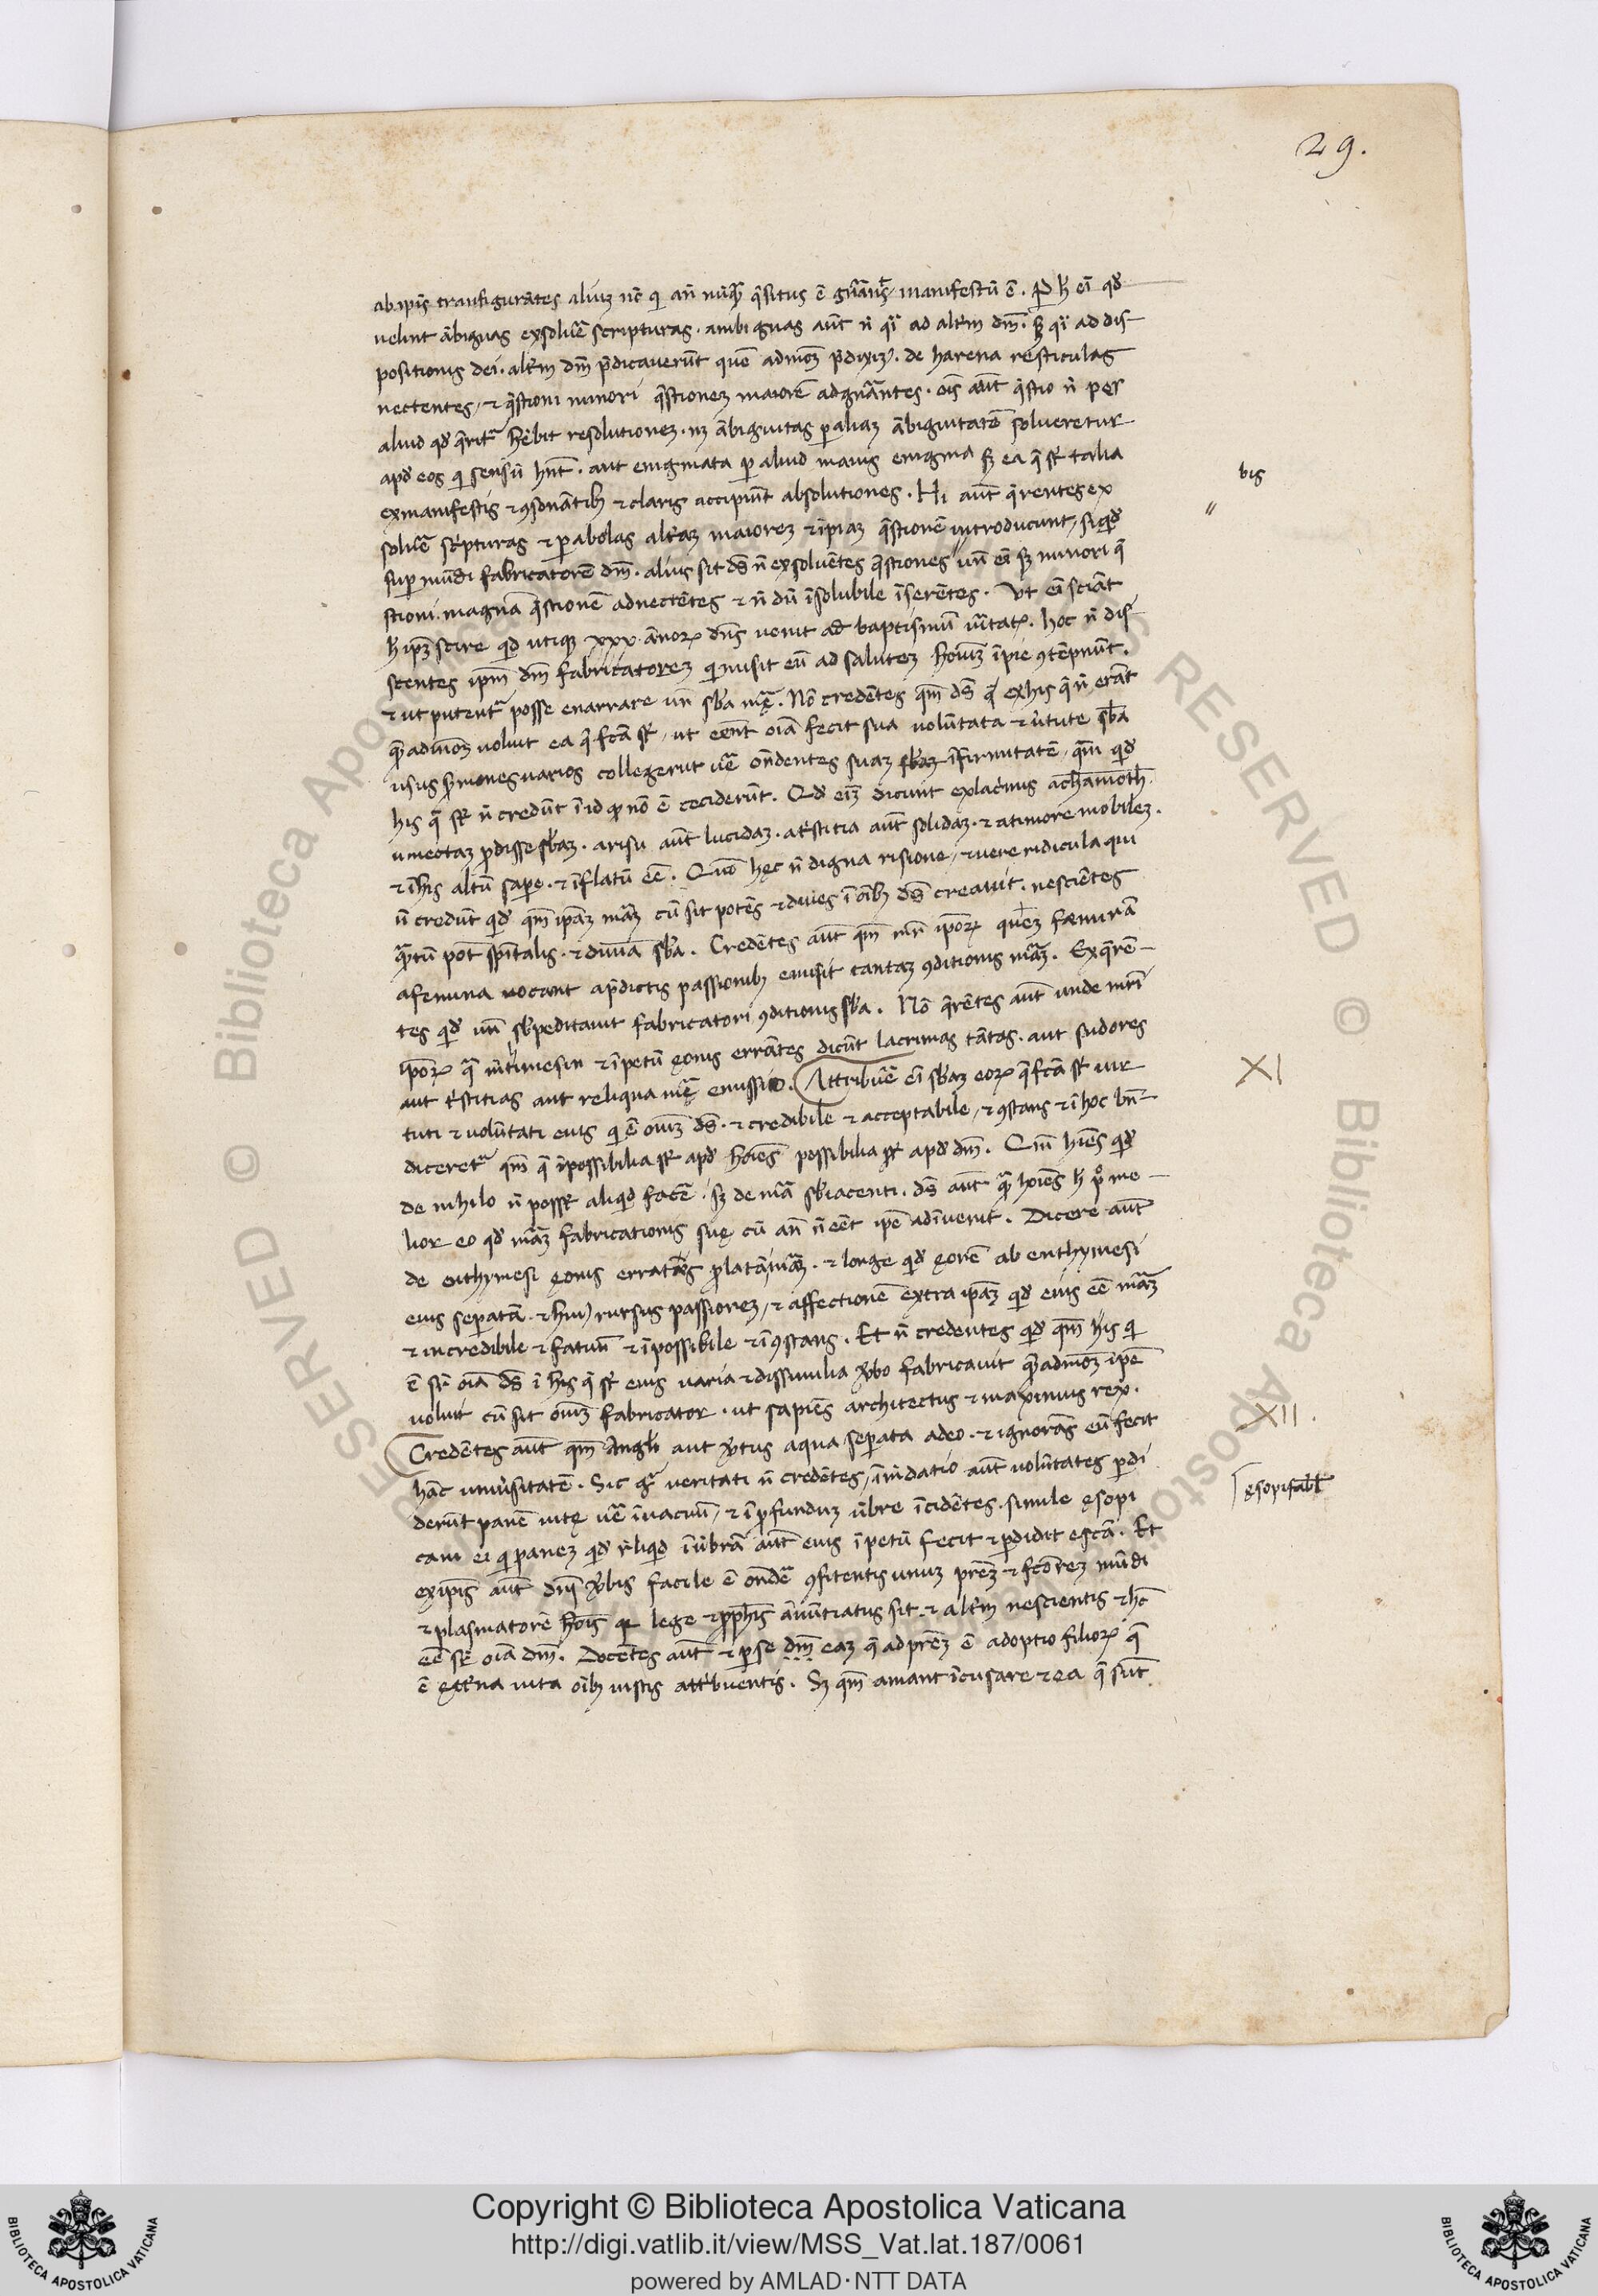 29.
ab ipis tranfigurātes aliuȝ nē q̄ añ nūq̄ q̄situs ē gn̄ants, manifestū ē. P h eī qd
uelint ābiguas exsoluē scripturas. ambiguas aūt n̄ q̄i ad alt̄m dm̄. sȝ q̄i ad dis
positionis dei. alt̄m dm̄ p̄dicauerūt quē admoȝ p̄dixiȝ. de harena resticulas
nectentes, & q̄stioni minori q̄stioneȝ maiorē adgn̄antes. ois aūt q̄stio n̄ per
aliud qd q̄rit̄ hēbit resolutioneȝ. nȝ ābiguitas p aliaȝ ābiguitatē solueretur
apd eos q̄ sensū hn̄t. aut enigmata p aliud maius enigma sȝ ea q̄ st̄ talia
ex manifestis & ꝯsonātibȝ & claris accipiūt absolutiones. Hi aūt q̄rentes ex
bis
soluē scripturas & parabolas alt̄aȝ maioreȝ & īpiaȝ q̄stionē introducunt, siqd
sup mūdi fabricatorē dm̄. alius sit ds̄ n̄ exsoluētes q̄stiones un̄ eī sȝ minori q̄
stioni magnā q̄stionē adnectētes & n̄ dū īsolubile īserētes. Vt eī sciāt
h ipȝ scire qd utiqȝ xxx. ānorꝝ dn̄s uenit ad baptismū uītatꝭ. hoc n̄ dis
centes ipm̄ dm̄ fabricatoreȝ q̄ misit eū ad saluteȝ hoīuȝ īpie ꝯtēpnūt.
& ut putent̄ posse enarrare un̄ sb̄a mē. Nō credētes qm̄ ds̄ q̄ ex his q̄ n̄ erāt
quē admoȝ uoluit ea q̄ fcā st̄, ut eēnt oīa fecit sua uolūtata & ūtute sb̄a
usus s̄mones uarios collegerūt uē on̄dentes suaȝ sb̄aȝ īfirmitatē, qm̄ qd
his q̄ st̄ n̄ credūt ī id qd nō ē ceciderūt. Qd eīȝ dicunt ex lacimis achamoth.
umectaȝ p̄disse sb̄aȝ. a risu aūt lucidaȝ. a tristitia aūt solidaȝ. & a timore mobileȝ.
& ī his altū sape. & īflatū eē. Quō hęc n̄ digna risione, & uere ridicula qui
n̄ credūt qd qm̄ ipaȝ māȝ cū sit potēs & diues ī oībȝ ds̄ creauit. nescientes
q̄ntū pōt sp̄italis. & diuina sb̄a. Credētes aūt qm̄ mr̄ ipōrꝝ queȝ fæminā
a femina uocant a p̄dictis passionibȝ emisit tantaȝ ꝯditionis māȝ. Exq̄ren
tes qd un̄ sb̄peditauit fabricatori ꝯditionis sb̄a. Nō q̄rētes aūt unde mr̄i
ipōrꝝ q̄ ītimesin & īpetū ęonis errātes dicūt lacrimas tātas. aut sudores
aut tristitias aut reliqua mē emissio. Attribuē eī sb̄aȝ eorꝝ q̄ fcā st̄ uir
XI
tuti & uolūtati eius q̄ ē oīuȝ ds̄. & credibile & acceptabile, & ꝯstans & ī hoc bn̄
diceret̄ qm̄ q̄ īpossibilia st̄ apd hoīes possibilia st̄ apd dm̄. Qm̄ hiēs qd
de nihilo n̄ possūt aliqd facē. sȝ de mā sb̄iacenti. ds̄ aūt q̄ hoīes h p̊ me
lior eo qd māȝ fabricationis suę cū añ n̄ eēt ipē adīuenit. Dicere aūt
de enthymesi ęonis erratātis platā māȝ. & longe qd ęonē ab enthymesi
eius separatā. & hui rursus passioneȝ, & affectionē extra ipaȝ qd eius eē māȝ
& incredibile & fatuū & īpossibile & īꝯstans. Et n̄ credentes qd qm̄ his q̄
ē sr̄ oīa ds̄ ī his q̄ st̄ eius uaria & dissimilia ūbo fabricauit quē admoȝ ipē
uoluit cū sit oīuȝ fabricator. ut sapiēs architectus & maximus rex.
XII.
Credētes aūt qm̄ Angli aut ūtus aqua separata a deo. & ignorās eū fecit
hāc uniūsitatē. Sic gͥ ueritati n̄ credētes, īmēdatio aūt uolūtates pdi
ęsopi fabl
derūt panē uitę uē ī uacuū, & ī pfunduȝ ūbre īcidētes. simile ęsopi
cani ei q̄ paneȝ qd reliqd ī ūbrā aūt eius īpetū fecit & pdidit escā. Et
ex ipis aūt dn̄i ūbis facile ē on̄dē ꝯfitentis unuȝ prēȝ & fctoreȝ mūdi
& plasmatorē hoīs q̄ lege & pphīs ānūtiatus sit. & alt̄m nescientis & hc
eē sr̄ oīa dm̄. Docētes aūt & p se dm̄ eaȝ q̄ ad prēȝ ē adoptio filiorꝝ q̄
ē ęt̄na uita oībȝ iustis attribuentis. Sȝ qm̄ amant īcusare & ea q̄ sūt
Copyright © Biblioteca Apostolica Vaticana
http://digi.vatlib.it/view/MSS_Vat.lat.187/0061
powered by AMLAD·NTT DATA